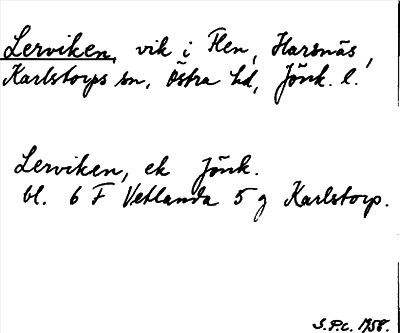 Lerviken, vik i Flen, Harsnäs,
Karlstorps sn, Östra hd, Jönk. l.
Lerviken, ek Jönk.
bl. 6 F Vetlanda 5 g Karlstorp.
S.P.c. 1958.